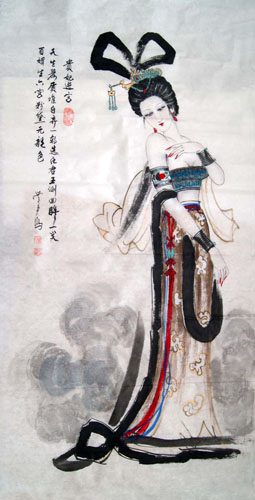 貴妃進宮
天生麗質難自弃一朝選在君王側回眸一笑
百媚生六宮粉黛无顏色